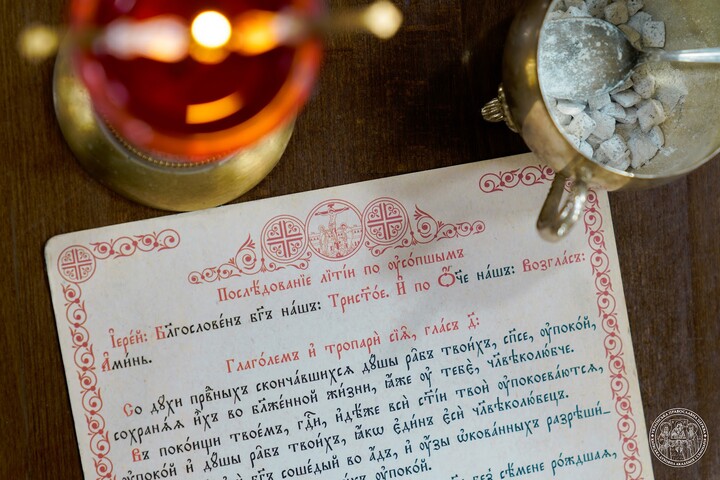 Послѣ́дованїе лїті́и по ᲂу҆со́пшымъ
І҆ере́й: Бл҃гослове́нъ бг҃ъ на́шъ: Трист҃о́е. И҆ по Ѻ҆́че на́шъ: Возгла́съ:
А҆ми́нь. Глаго́лемъ и҆ тропарѝ сїѧ̑, гла́съ д҃:
Со дꙋ́хи првⷣныхъ сконча́вшихсѧ дꙋ́шы ра̑бъ твои́хъ, сп҃се, ᲂу҆поко́й,
сохранѧ́ѧ и҆̀хъ во бл҃же́нной жи́зни, ꙗ҆́же ᲂу҆ тебє̀, чл҃вѣколю́бче.
Въ поко́ищи твое́мъ, гдⷭ҇и, и҆дѣ́же всѝ ст҃і́и твоѝ ᲂу҆покоева́ютсѧ,
ᲂу҆поко́й и҆ дꙋ́шы ра̑бъ твои́хъ, ꙗ҆́кѡ є҆ди́нъ є҆сѝ чл҃вѣколю́бецъ.
бг҃ъ соше́дый во а҆́дъ, и҆ ᲂу҆́зы ѡ҆кова́нныхъ разрѣши́-
твои́хъ ᲂу҆поко́й.
без̾ сѣ́мене ро́ждшаѧ,